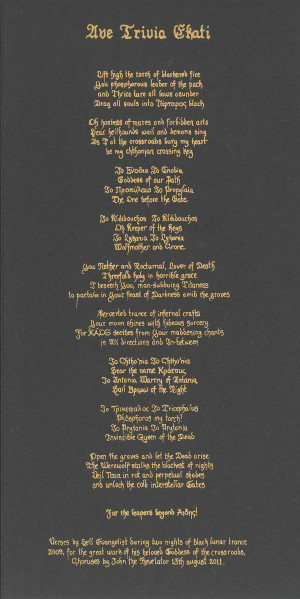 Ave Trivia Ekati
Lift high the torch of blackened fire
You phosphorous leader of the pack
and Thrice tare all laws asunder
Drag all souls into Τάρταρος black
Oh hostess of mares and forbidden arts
Hear hellhounds wail and demons sing
As I at the crossroads bury my heart
be my chthonian crossing key
Io Ενοδια Io Enodia
Goddess of our Path
Io Προπυλαια Io Propylaia
The One before the Gate
Io Klêidouchos Io Klêidouchos
Oh Keeper of the Keys
Io Lykania Io Lykania
Wolfmother and Crone
You Nether and Nocturnal, Lover of Death
Threefold holy in horrible grace
I beseech You, man-subduing Titaness
to partake in Your feast of Darkness amid the graves
Perverted trance of infernal crafts
Your moon shines with hideous sorcery
For seethes from Your maddening chants
in All directions and In-between
Io Chtho'nia Io Chtho'nia
Hear the name Κράτους
Io Antania Io Antania
Hail Βριμω of the Night
Io Τρικεφαλος Io Tricephalus
Phôsphoros my torch!
Io Prytania Io Prytania
Invincible Queen of the Dead
Open the graves and let the Dead arise
The Werewolf stalks the blackest of nights
Veil in rot and perpetual shades
and unlock the cold interstellar Gates
For the leapers beyond Αιδης!
Verses by Hell Evangelist during two nights of black lunar trance
2009, for the great work of his beloved Goddess of the crossroads.
Choruses by John the Revelator 13th august 2011.